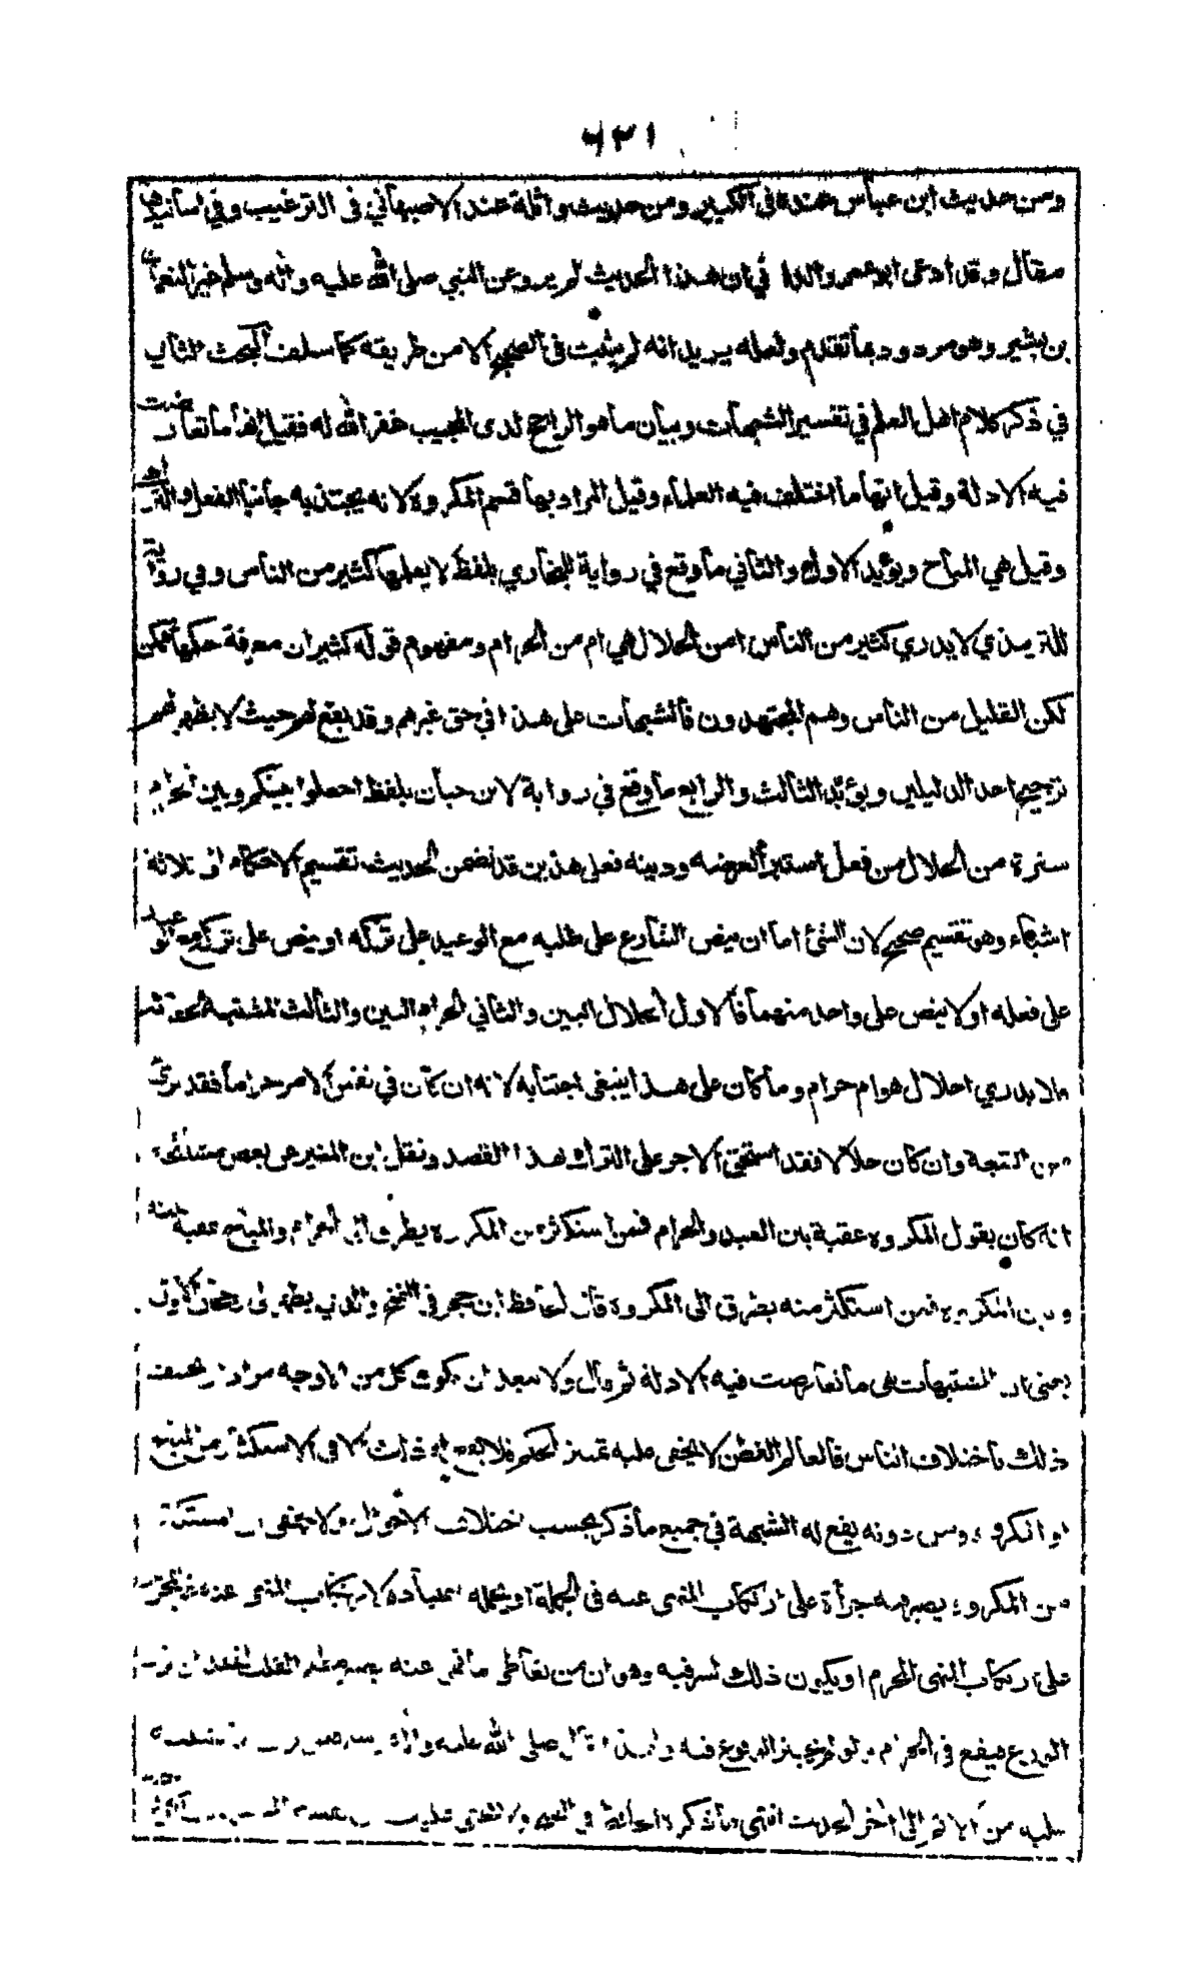 ٦٣١
ومن حديث ابن عباس عنده في الكبير ومن حديث واثلة عند الاصبهاني في الترغيب وفي اسانيدها
مقال وقد ادعى ابو عمرو الداني ان هذا الحديث لم يروه عن النبي صلى الله عليه وآله وسلم غير النعمان
بن بشير وهو مردود بما تقدم ولعله يريد انه لم يثبت في الصحيح الا من طريقه كما سلف البحث الثاني
في ذكر كلام اهل العلم في تفسير الشبهات وبيان ما هو الراجح لدى المجيب غفر الله له فقيل انها ما تعارضت
فيه الادلة وقيل انها ما اختلف فيه العلماء وقيل المراد بها قسم المكروه لانه يجتذبه جانبا الفعل والترك
وقيل هي المباح ويؤيد الاول والثاني ما وقع في رواية للبخاري بلفظ لا يعلمها كثير من الناس وفي رواية
للترمذي لا يدري كثير من الناس امن الحلال هي ام من الحرام ومفهوم قوله كثير ان معرفة حكمها تمكن
لكن القليل من الناس وهم المجتهدون فالشبهات على هذا في حق غيرهم وقد يقع لهم حيث لا يظهر لهم
ترجيح احد الدليلين ويؤيد الثالث والرابع ما وقع في رواية لابن حبان بلفظ اجعلوا بينكم وبين الحرام
سترة من الحلال من فعل استبرأ لعرضه ودينه فعلى هذين قد تضمن الحديث تقسيم الاحكام الى ثلاثة
اشياء وهو تقسيم صحيح لان الشئ اما ان ينص الشارع على طلبه مع الوعيد على تركه او ينص على تركه مع الوعيد
على فعله او لا ينص على واحد منهما فالاول الحلال البين والثاني الحرام البين والثالث المشتبه
ما لا يدري احلال هو ام حرام وما كان على هذا ينبغي اجتنابه لانه ان كان في نفس الامر حراما فقد برئ
من التبعة وان كان حلالا فقد استحق الاجر على الترك لهذا القصد ونقل ابن المنير عن بعض مشائخه
انه كان يقول المكروه عقبة بين العبد والحرام فمن استكثر من المكروه يطرق الى الحرام والمباح عقبة بينه
وبين المكروه فمن استكثر منه يطرق الى المكروه قال الحافظ ابن حجر في الفتح والذي يظهر لي رجحان الاول
يعني ان المشتبهات هي ما تعارضت فيه الادلة ثم قال ولا يبعد ان يكون كل من الاوجه مرادا ويختلف
ذلك باختلاف الناس فالعالم الفطن لا يخفى عليه تميز الحكم فلا يقع له ذلك الا في الاستكثار من المباح
او المكروه ومن دونه يقع له الشبهة في جميع ما ذكر بحسب اختلاف الاحوال ولا يخفى ان المستكثر
من المكروه يصير فيه جرأة على ارتكاب المنهي عنه في الجملة او يحمله اعتياده لارتكاب المنهي عنه غير المحرم
على ارتكاب المنهي المحرم او يكون ذلك لسر فيه وهو ان من تعاطى ما نهي عنه يصير مظلم القلب لفقدان نور
الورع فيقع في الحرام ولو لم يختر الوقوع فيه
عليه من الاثم الى آخر الحديث انتهى ما ذكره الحافظ في الفتح